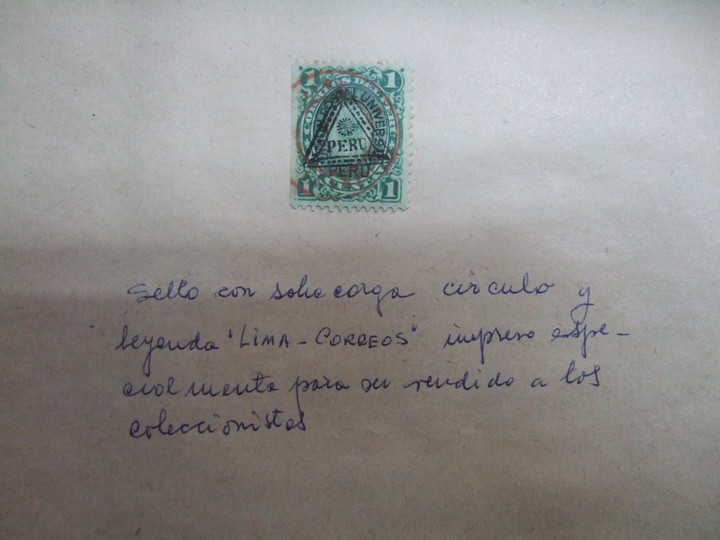 1 1
UNION POSTAL UNIVERSAL
PERU
PERU
1 1
Sello con sobrecarga circulo y
leyenda "LIMA-CORREOS" impreso espe-
cialmente para ser vendido a los
coleccionistas